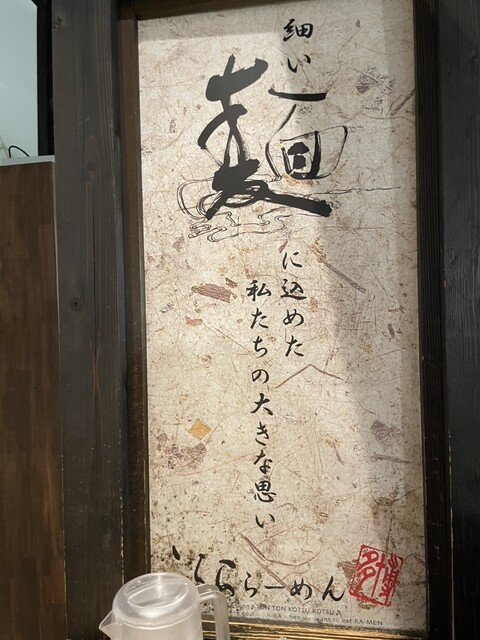 細い麺に込めた
私たちの大きな思い
らーめん
TON KOTSU KOTSU♪
want to eat RA-MEN